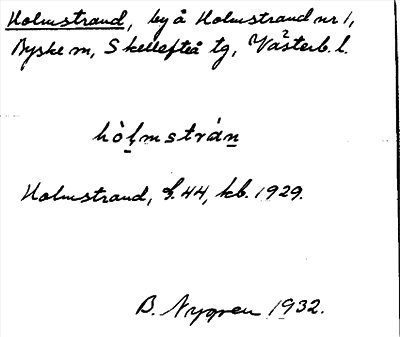 Holmstrand, by å Holmstrand nr 1,
Byske sn, Skellefteå tg, Västerb. l.
2
hòlmstrán
Holmstrand, f. 44, kb. 1929.
B. Nygren 1932.